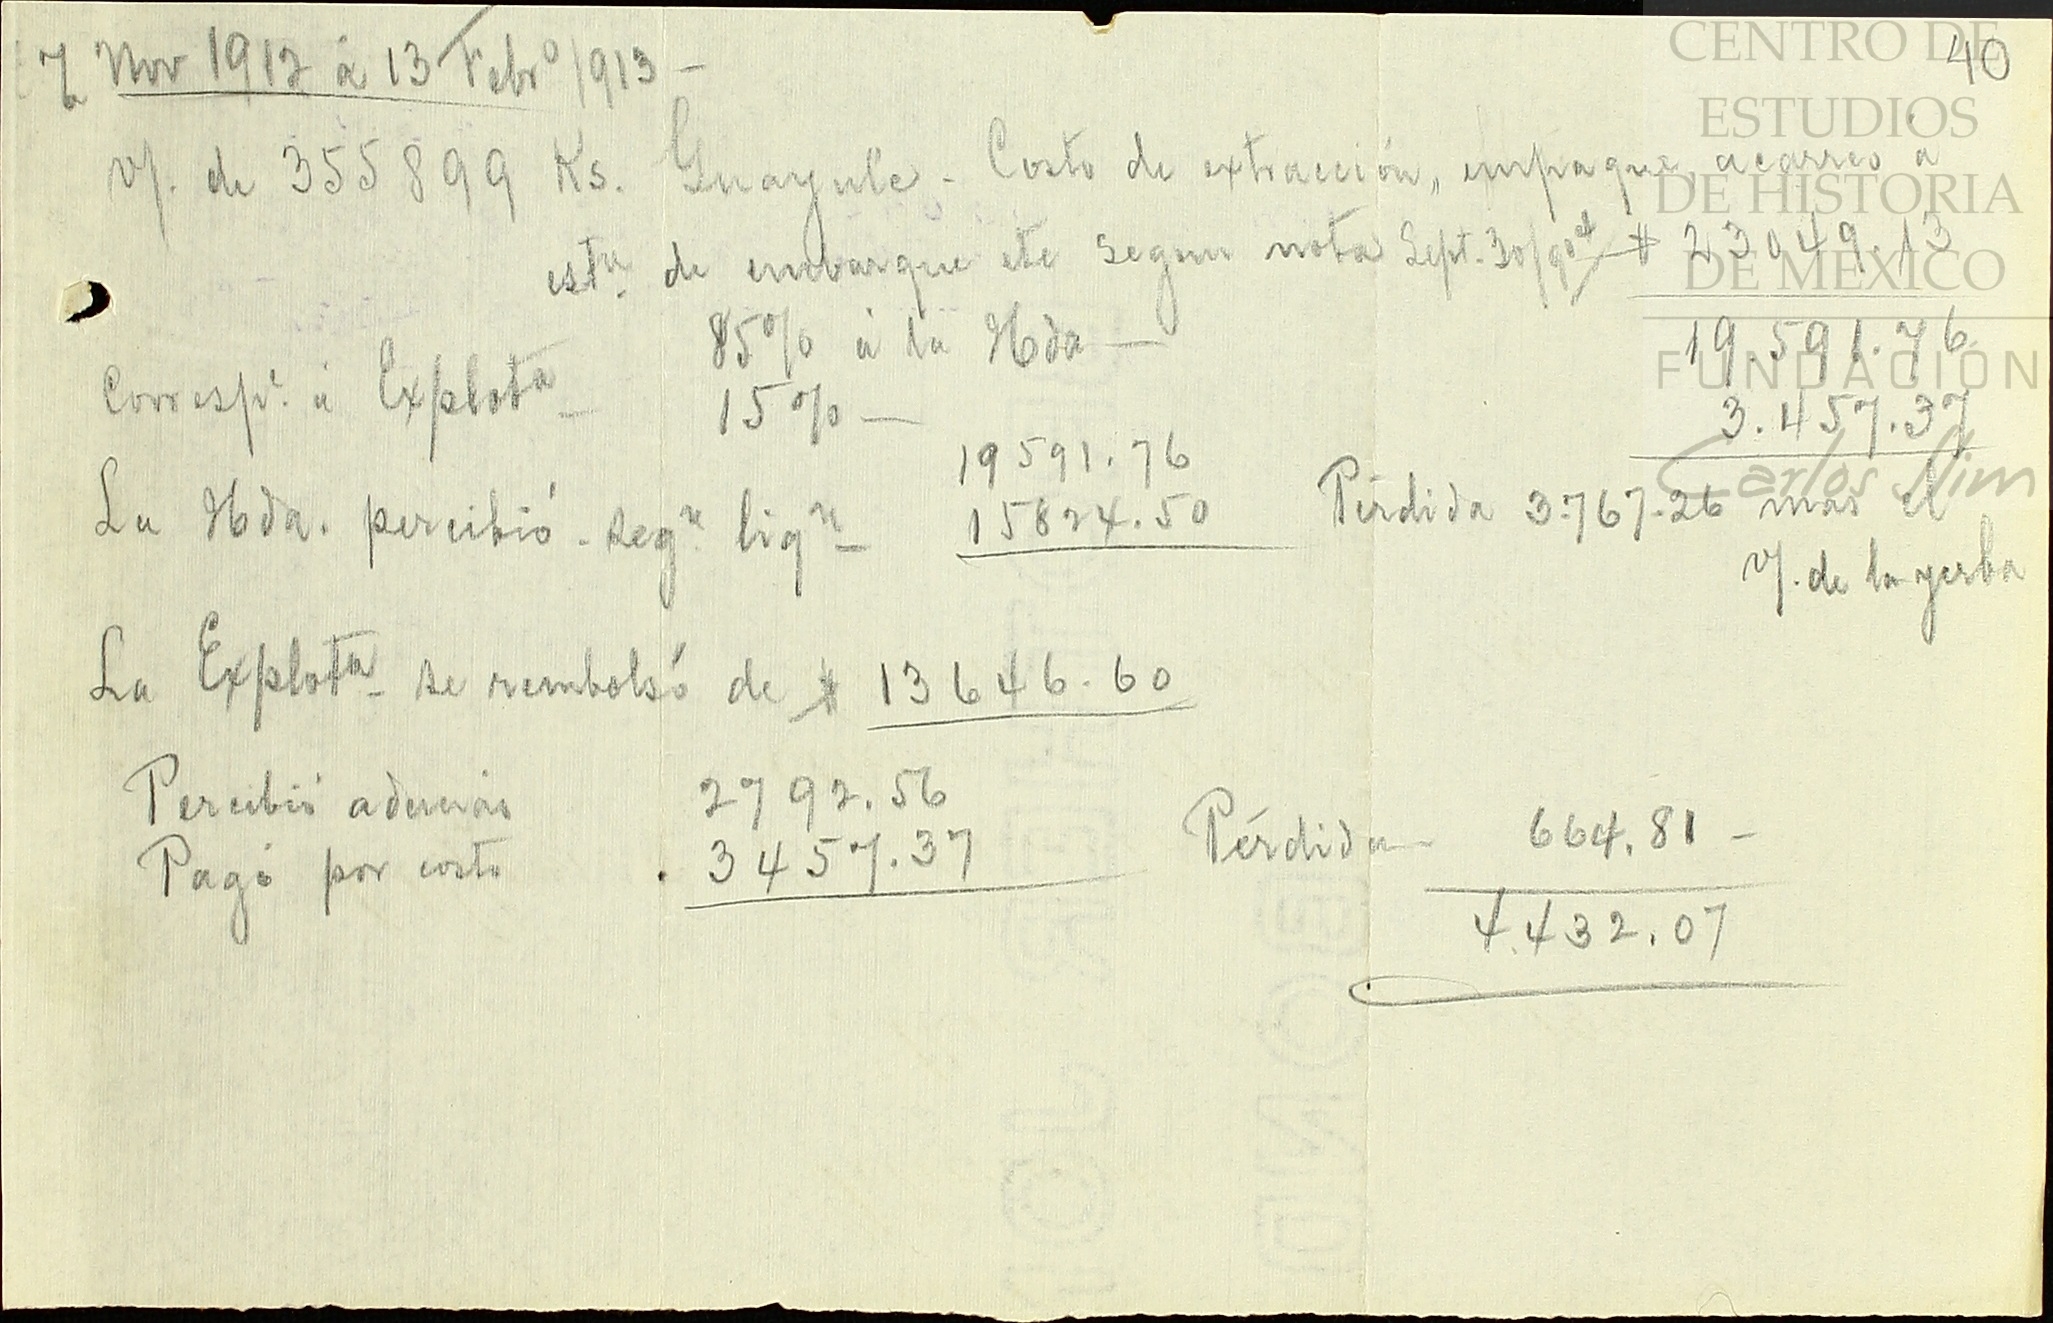 40
7 Nov 1912 á 13 Febrº 1913 —
v/. de 355899 Ks. Guayule - Costo de extracción, empaque, acarreo a
estn. de embarque etc segun nota Sept. 30/904 $ 23049.13
85% á la Hda — 19.591.76
Corresp.e á Explota — 15% — 3.457.37
19591.76
La Hda. percibió - segn. liqn — 15824.50 Pérdida 3.767.26 mas el
v/. de la yerba
La Explota — se rembolsó de $ 13646.60
Percibió además 2792.56
Pagó por costo . 3457.37 Pérdida — 664.81 —
4.432.07
CENTRO DE
ESTUDIOS
DE HISTORIA
DE MÉXICO
FUNDACIÓN
Carlos Slim